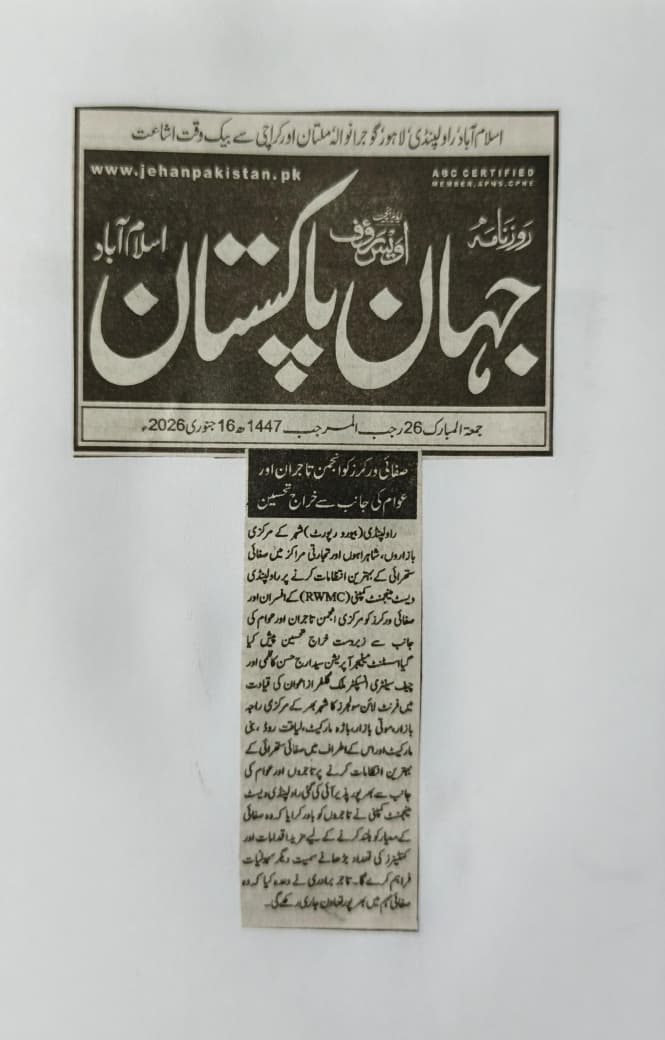 اسلام آباد، راولپنڈی، لاہور، گوجرانوالہ، ملتان اور کراچی سے بیک وقت اشاعت
www.jehanpakistan.pk
ABC CERTIFIED
MEMBER, APNS, CPNE
روزنامہ
اویس رؤف
اسلام آباد
جہان پاکستان
جمعۃ المبارک 26 رجب المرجب 1447ھ 16 جنوری 2026ء
صفائی ورکرز کو انجمن تاجران اور
عوام کی جانب سے خراج تحسین
راولپنڈی (بیورو رپورٹ) شہر کے مرکزی
بازاروں، شاہراہوں اور تجارتی مراکز میں صفائی
ستھرائی کے بہترین انتظامات کرنے پر راولپنڈی
ویسٹ مینجمنٹ کمپنی (RWMC) کے افسران اور
صفائی ورکرز کو مرکزی انجمن تاجران اور عوام کی
جانب سے زبردست خراج تحسین پیش کیا
گیا، اسسٹنٹ مینیجر آپریشن سید ارج حسن کاظمی اور
چیف سینٹری انسپکٹر ملک گلفراز اعوان کی قیادت
میں فرنٹ لائن سولجرز کا شہر بھر کے مرکزی راجہ
بازار، موتی بازار، باڑہ مارکیٹ، لیاقت روڈ، بنی
مارکیٹ اور اس کے اطراف میں صفائی ستھرائی کے
بہترین انتظامات کرنے پر تاجروں اور عوام کی
جانب سے بھرپور پذیرائی کی گئی راولپنڈی ویسٹ
مینجمنٹ کمپنی نے تاجروں کو باور کرایا کہ وہ صفائی
کے معیار کو بلند کرنے کے لیے مزید اقدامات اور
کنٹینرز کی تعداد بڑھانے سمیت دیگر سہولیات
فراہم کرے گا۔ تاجر برادری نے وعدہ کیا کہ وہ
صفائی مہم میں بھرپور تعاون جاری رکھے گی۔